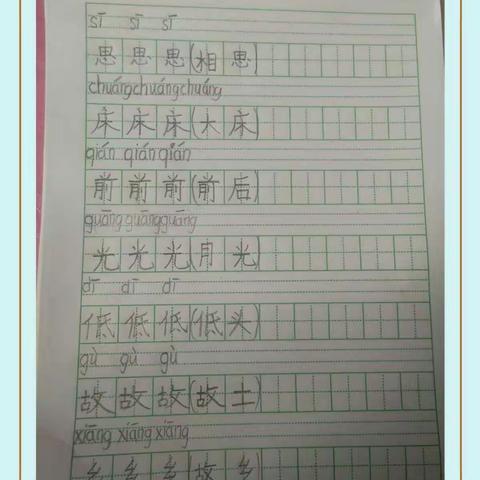 sī sī sī
思思思(相思)
chuáng chuáng chuáng
床床床(大床)
qián qián qián
前前前(前后)
guāng guāng guāng
光光光(月光)
dī dī dī
低低低(低头)
gù gù gù
故故故(故土)
xiāng xiāng xiāng
乡乡乡(故乡